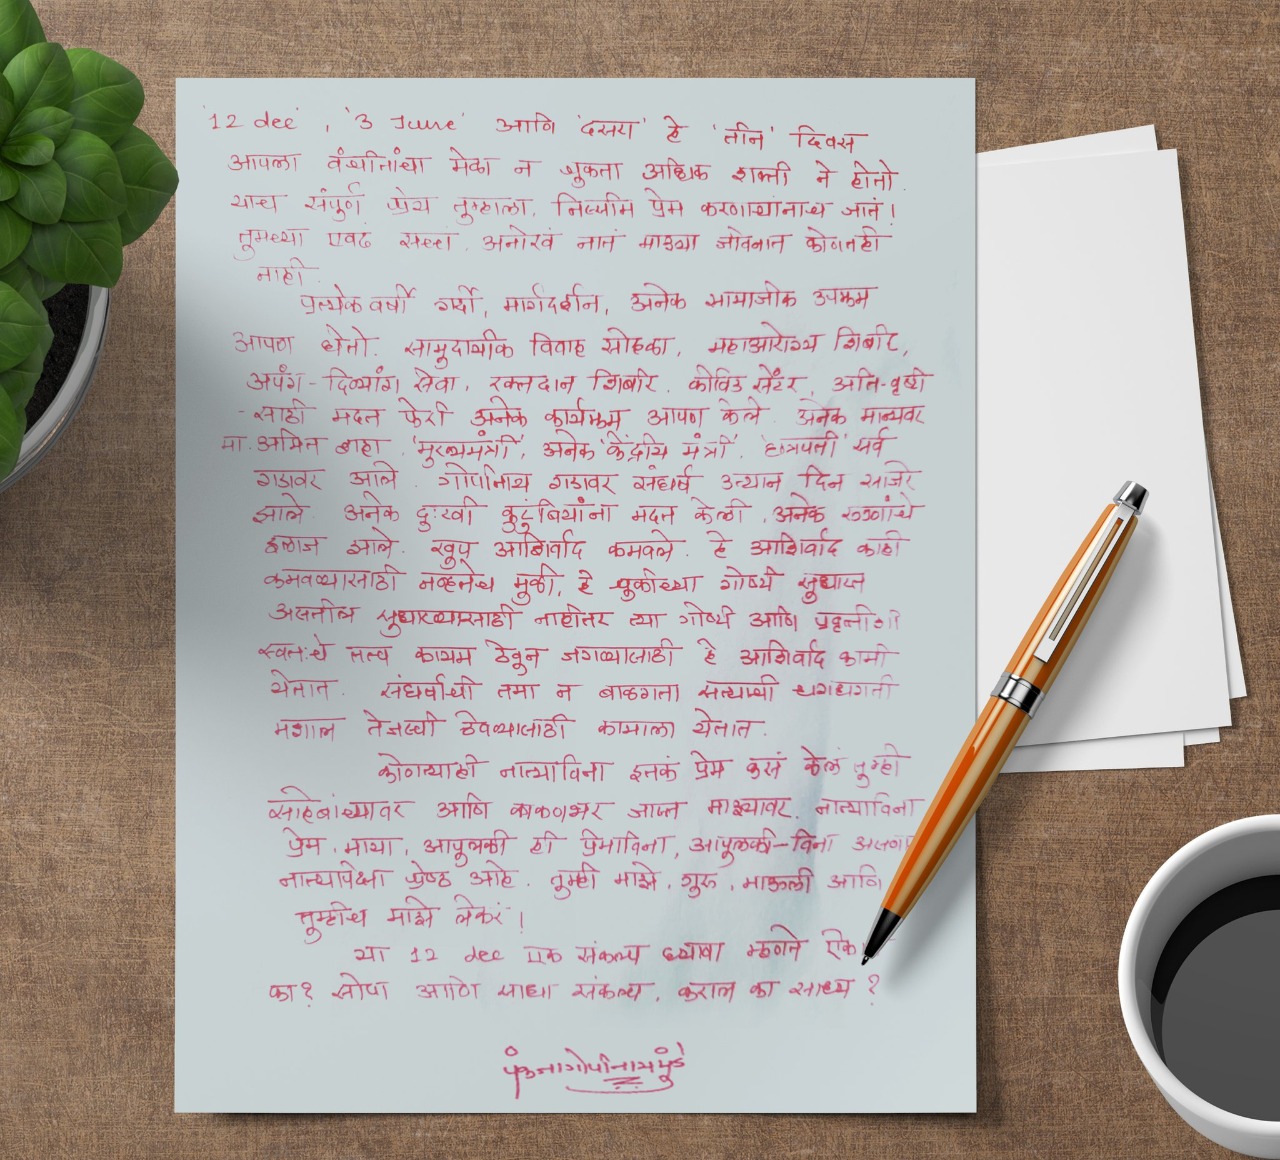 '12 dec', '3 June' आणि 'दसरा' हे 'तीन' दिवस
आपला वंचितांचा मेळा न चुकता अधिक शक्ती ने होतो.
याचं संपूर्ण श्रेय तुम्हाला, निस्सीम प्रेम करणाऱ्यांनाच जातं!
तुमच्या एवढं सच्चं, अनोखं नातं माझ्या जीवनात कोणतही
नाही.
प्रत्येक वर्षी गर्दी, मार्गदर्शन, अनेक सामाजीक उपक्रम
आपण घेतो. सामुदायीक विवाह सोहळा, महाआरोग्य शिबीर,
अपंग-दिव्यांग सेवा, रक्तदान शिबीर, कोविड सेंटर, अति-वृष्टी
-साठी मदत फेरी अनेक कार्यक्रम आपण केले. अनेक मान्यवर
मा. अमित शहा, 'मुख्यमंत्री', अनेक 'केंद्रीय मंत्री', 'छत्रपती' सर्व
गडावर आले. गोपीनाथ गडावर संघर्ष उत्थान दिन साजरे
झाले. अनेक दुःखी कुटुंबियांना मदत केली, अनेक रुग्णांचे
इलाज झाले. खूप आशिर्वाद कमवले. हे आशिर्वाद काही
कमवण्यासाठी नव्हतेच मुळी, हे चुकीच्या गोष्टी सुधारत
असतील सुधारण्यासाठी नाहीतर त्या गोष्टी आणि प्रवृत्तीशी
स्वतःचे सत्व कायम ठेवून जगण्यासाठी हे आशिर्वाद कामी
येतात. संघर्षाची तमा न बाळगता सत्याची धगधगती
मशाल तेजस्वी ठेवण्यासाठी कामाला येतात.
कोणत्याही नात्याविना इतकं प्रेम कसं केलं तुम्ही
साहेबांच्यावर आणि काकणभर जास्त माझ्यावर. नात्याविना
प्रेम, माया, आपुलकी ही प्रेमाविना, आपुलकी-विना असणाऱ्या
नात्यापेक्षा श्रेष्ठ आहे. तुम्ही माझे, गुरु, माऊली आणि
तुम्हीच माझे लेकरं!
या 12 dec एक संकल्प घ्यावा म्हणते ऐकाल
का? सोपा आणि साधा संकल्प, कराल का साध्य?
पंकजा गोपीनाथ मुंडे